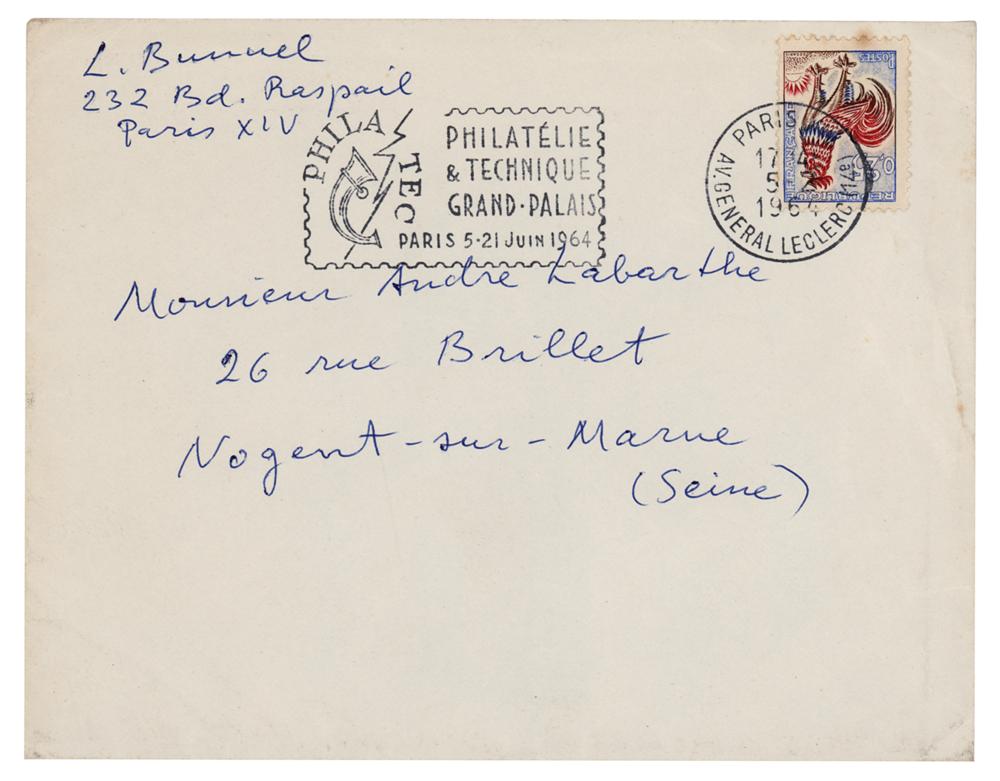 L. Bunuel
232 Bd. Raspail
Paris XIV
PHILATEC
PHILATÉLIE
& TECHNIQUE
GRAND-PALAIS
PARIS 5-21 JUIN 1964
POSTES
REPUBLIQUE FRANÇAISE
PARIS
1964
AV. GENERAL LECLERC (14e)
Monsieur André Labarthe
26 rue Brillet
Nogent-sur-Marne
(Seine)